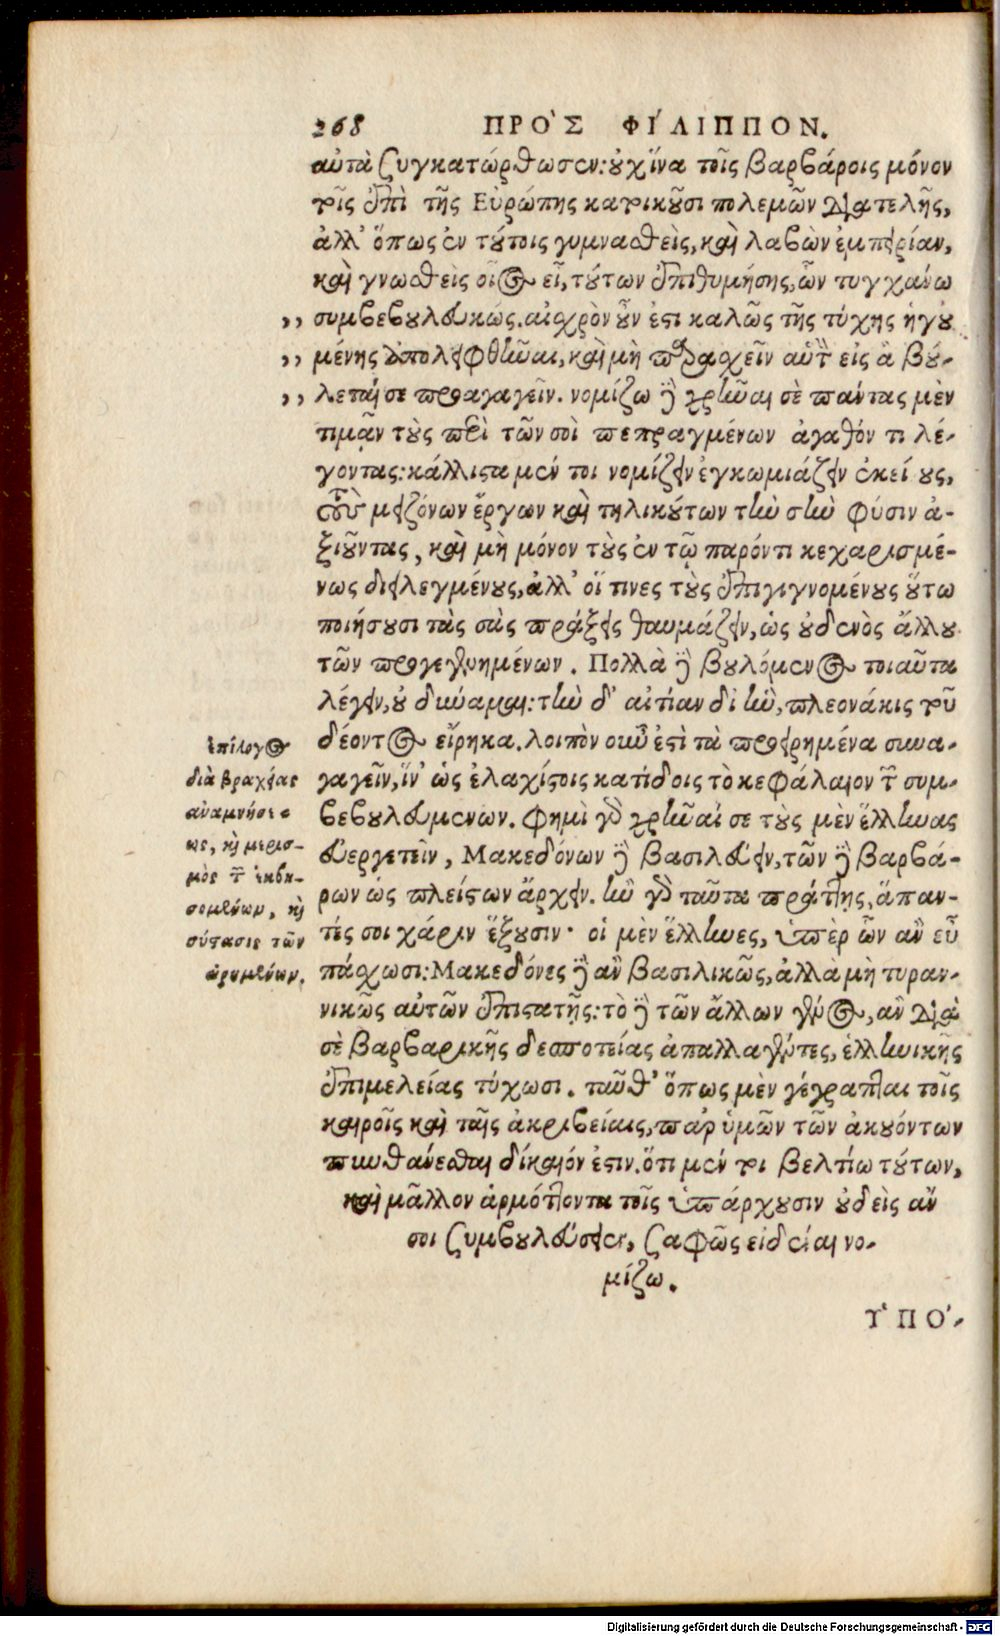 268 ΠΡΟῸΣ ΦΊΛΙΠΠΟΝ.
αὐτὰ συγκατώρθωσεν: οὐχ ἵνα τοῖς βαρβάροις μόνον
τοῖς ἐπὶ τῆς Εὐρώπης κατοικοῦσι πολεμῶν διατελῇς,
ἀλλ' ὅπως ἐν τούτοις γυμνασθεὶς, καὶ λαβὼν ἐμπειρίαν,
καὶ γνωσθεὶς οἷος εἶ, τούτων ἐπιθυμήσῃς, ὧν τυγχάνω
,, συμβεβουλευκώς. αἰσχρὸν οὖν ἐστι καλῶς τῆς τύχης ἡγου
,, μένης ἀπολειφθῆναι, καὶ μὴ παρασχεῖν αὑτὸν εἰς ἃ βού-
,, λεταί σε προαγαγεῖν. νομίζω δὲ χρῆναι σὲ πάντας μὲν
τιμᾷν τοὺς περὶ τῶν σοὶ πεπραγμένων ἀγαθόν τι λέ-
γοντας: κάλλιστα μέν τοι νομίζειν ἐγκωμιάζειν ἐκείνους,
τοὺς μειζόνων ἔργων καὶ τηλικούτων τὴν σὴν φύσιν ἀ-
ξιοῦντας, καὶ μὴ μόνον τοὺς ἐν τῷ παρόντι κεχαρισμέ-
νως διειλεγμένους, ἀλλ' οἵ τινες τοὺς ἐπιγιγνομένους οὕτω
ποιήσουσι τὰς σὰς πράξεις θαυμάζειν, ὡς οὐδενὸς ἄλλου
τῶν προγεγενημένων. Πολλὰ δὲ βουλόμενος τοιαῦτα
λέγειν, οὐ δύναμαι: τὴν δ' αἰτίαν δι' ἣν, πλεονάκις τοῦ
δέοντος εἴρηκα. λοιπὸν οὖν ἐστὶ τὰ προειρημένα συνα-
γαγεῖν, ἵν' ὡς ἐλαχίστοις κατίδοις τὸ κεφάλαιον τῶν συμ-
βεβουλευμένων. φημὶ γὰρ χρῆναί σε τοὺς μὲν ἕλληνας
εὐεργετεῖν, Μακεδόνων δὲ βασιλεύειν, τῶν δὲ βαρβά-
ρων ὡς πλείστων ἄρχειν. ἢν γὰρ ταῦτα πράττῃς, ἅπαν-
τές σοι χάριν ἕξουσιν· οἱ μὲν ἕλληνες, ὑπὲρ ὧν ἂν εὖ
πάσχωσι: Μακεδόνες δὲ ἂν βασιλικῶς, ἀλλὰ μὴ τυραν-
νικῶς αὐτῶν ἐπιστατῇς: τὸ δὲ τῶν ἄλλων γένος, ἂν διὰ
σὲ βαρβαρικῆς δεσποτείας ἀπαλλαγέντες, ἑλληνικῆς
ἐπιμελείας τύχωσι. ταῦθ' ὅπως μὲν γέγραπται τοῖς
καιροῖς καὶ ταῖς ἀκριβείαις, παρ' ὑμῶν τῶν ἀκουόντων
πυνθάνεσθαι δίκαιόν ἐστιν. ὅτι μέν τοι βελτίω τούτων,
καὶ μᾶλλον ἁρμόττοντα τοῖς ὑπάρχουσιν οὐδεὶς ἄν
σοι συμβουλεύσειεν, σαφῶς εἰδέναι νο-
μίζω.
ἐπίλογος
διὰ βραχείας
ἀναμνήσε-
ως, καὶ μερισ-
μὸς τῶν ἐκβη-
σομένων, καὶ
σύστασις τῶν
εἰρημένων.
ὙΠΟ'-
Digitalisierung gefördert durch die Deutsche Forschungsgemeinschaft - DFG